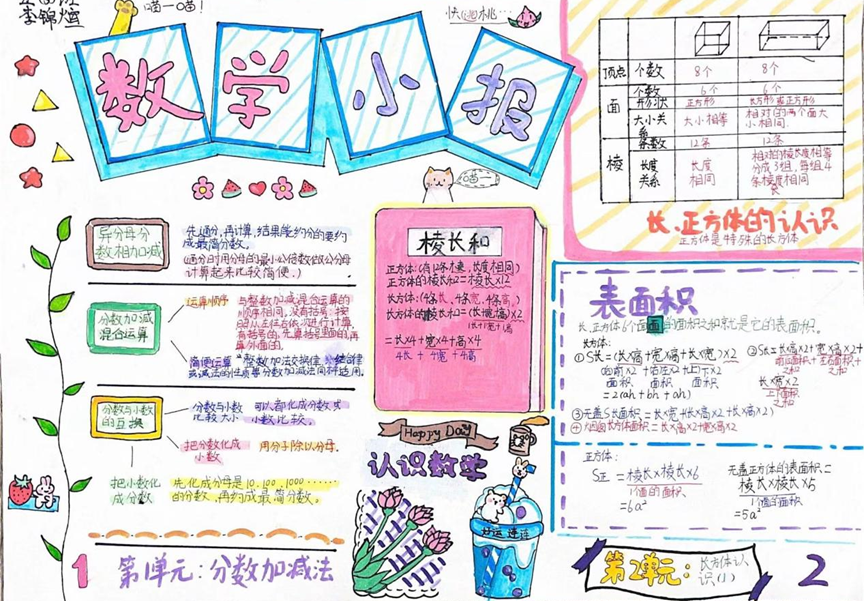 李锦煊
喵一喵!
快逃桃…
数学小报
喵一
顶点 个数 8个 8个
面 个数 6个 6个
形状 正方形 长方形或正方形
大小关系 大小相等 相对的两个面大小相同
棱 条数 12条 12条
长度关系 长度相同 相对的棱长度相等
分成3组,每组4条棱长度相同
长、正方体的认识
正方体是特殊的长方体
异分母分数相加减
先通分,再计算,结果能约分的要约成最简分数。
(通分时用分母的最小公倍数做公分母计算起来比较简便。)
分数加减混合运算
运算顺序
与整数加减混合运算的
顺序相同,没有括号,按
照从左往右依次进行计算,
有括号的,先算括号里面的,再
算外面的。
简便运算
整数加法交换律、结合律
或减法的性质等分数加减法同样适用。
分数与小数的互换
分数与小数比较大小
可以都化成分数或小数比较。
把分数化成小数
用分子除以分母。
把小数化成分数
先化成分母是10、100、1000……
的分数,再约成最简分数。
1 第1单元:分数加减法
棱长和
正方体:(有12条棱,长度相同)
正方体的棱长和=棱长×12
长方体:(4条长,4条宽,4条高)
长方体的棱长和=(长+宽+高)×4
=长×4+宽×4+高×4
4长+4宽+4高
Happy Day
认识数学
好运连连
表面积
长、正方体6个面的面积之和就是它的表面积。
长方体:
①S长=(长×宽+宽×高+长×高)×2
面积 面积 面积
=2(ah+bh+ab)
②S长=长×高×2+宽×高×2+
长×宽×2
上下面积之和
③无盖S长面积=长×宽+(长×高×2+宽×高×2)
④四面长方体面积=长×高×2+宽×高×2
正方体:
S正=棱长×棱长×6
1个面的面积
=6a²
无盖正方体的表面积=
棱长×棱长×5
1个面的面积
=5a²
第2单元:长方体认识(1)
2